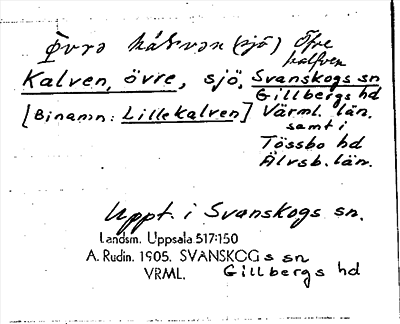 Övre kalven (sjö) Öfre
kalfven
Kalven, övre, sjö, Svanskogs sn
Gillbergs hd
[Binamn: Lillekalven] Värml. län.
samt i
Tössbo hd
Älvsb. län.
Uppt. i Svanskogs sn.
Landsm. Uppsala 517:150
A. Rudin. 1905. SVANSKOGs sn
VRML. Gillbergs hd